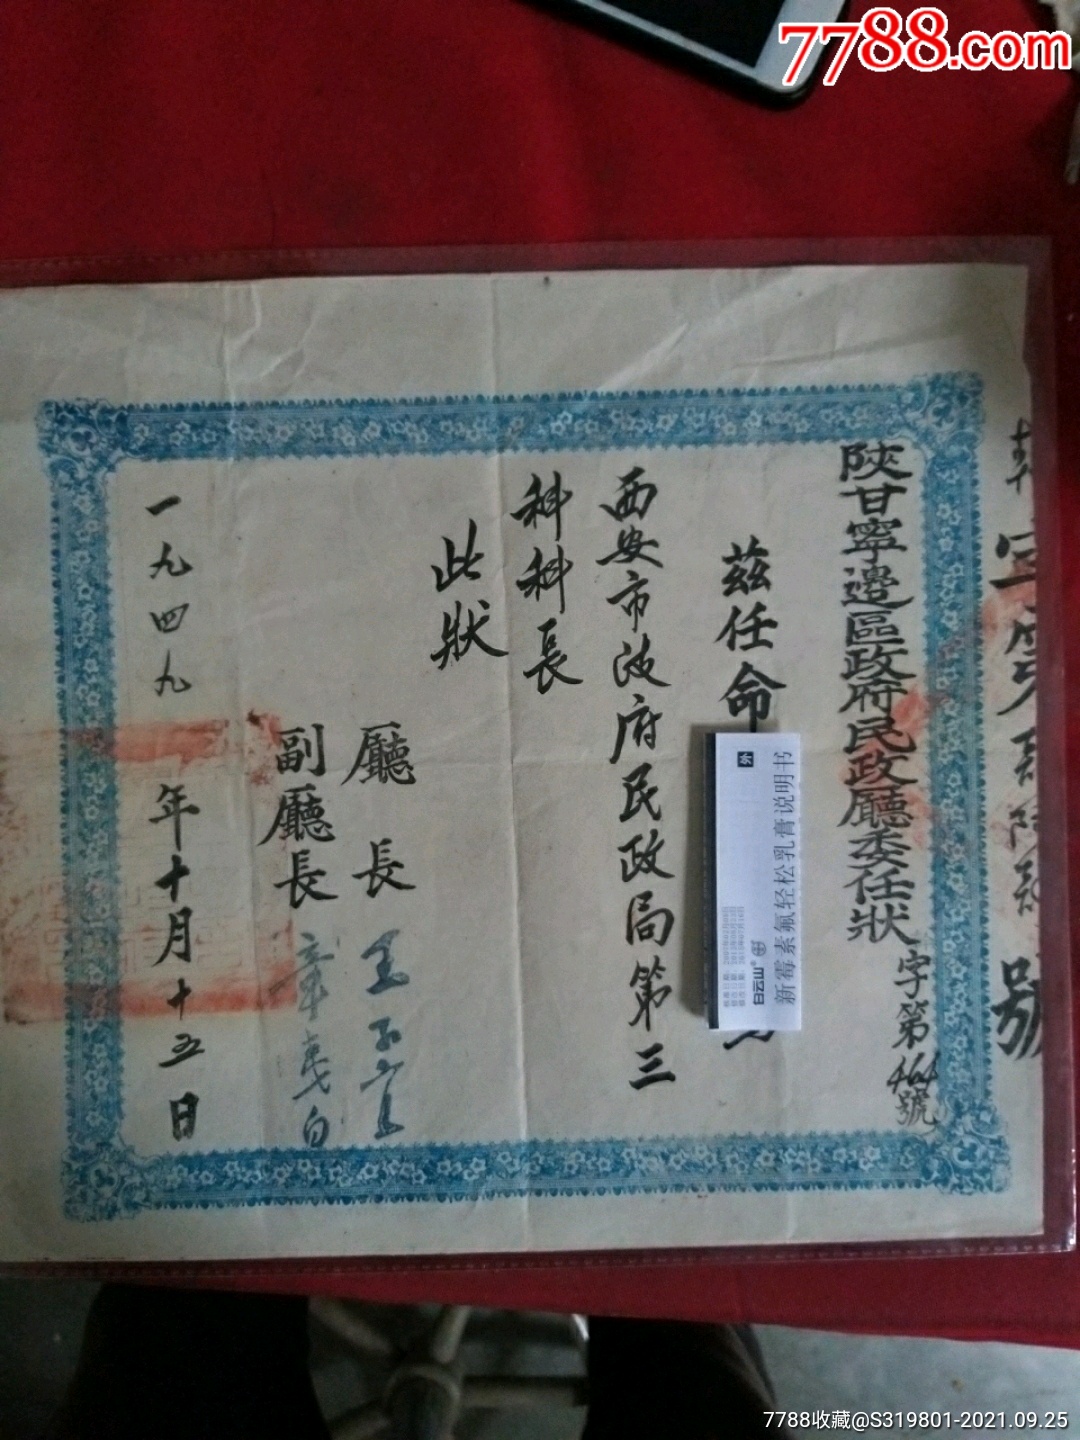 7788.com
陝甘寧邊區政府民政廳委任狀
字第464號
茲任命
為
西安市政府民政局第三
科科長
此狀
廳長
副廳長
一九四九年十月十五日
號
新霉素氟轻松乳膏说明书
白云山®
外
7788收藏@S319801-2021.09.25